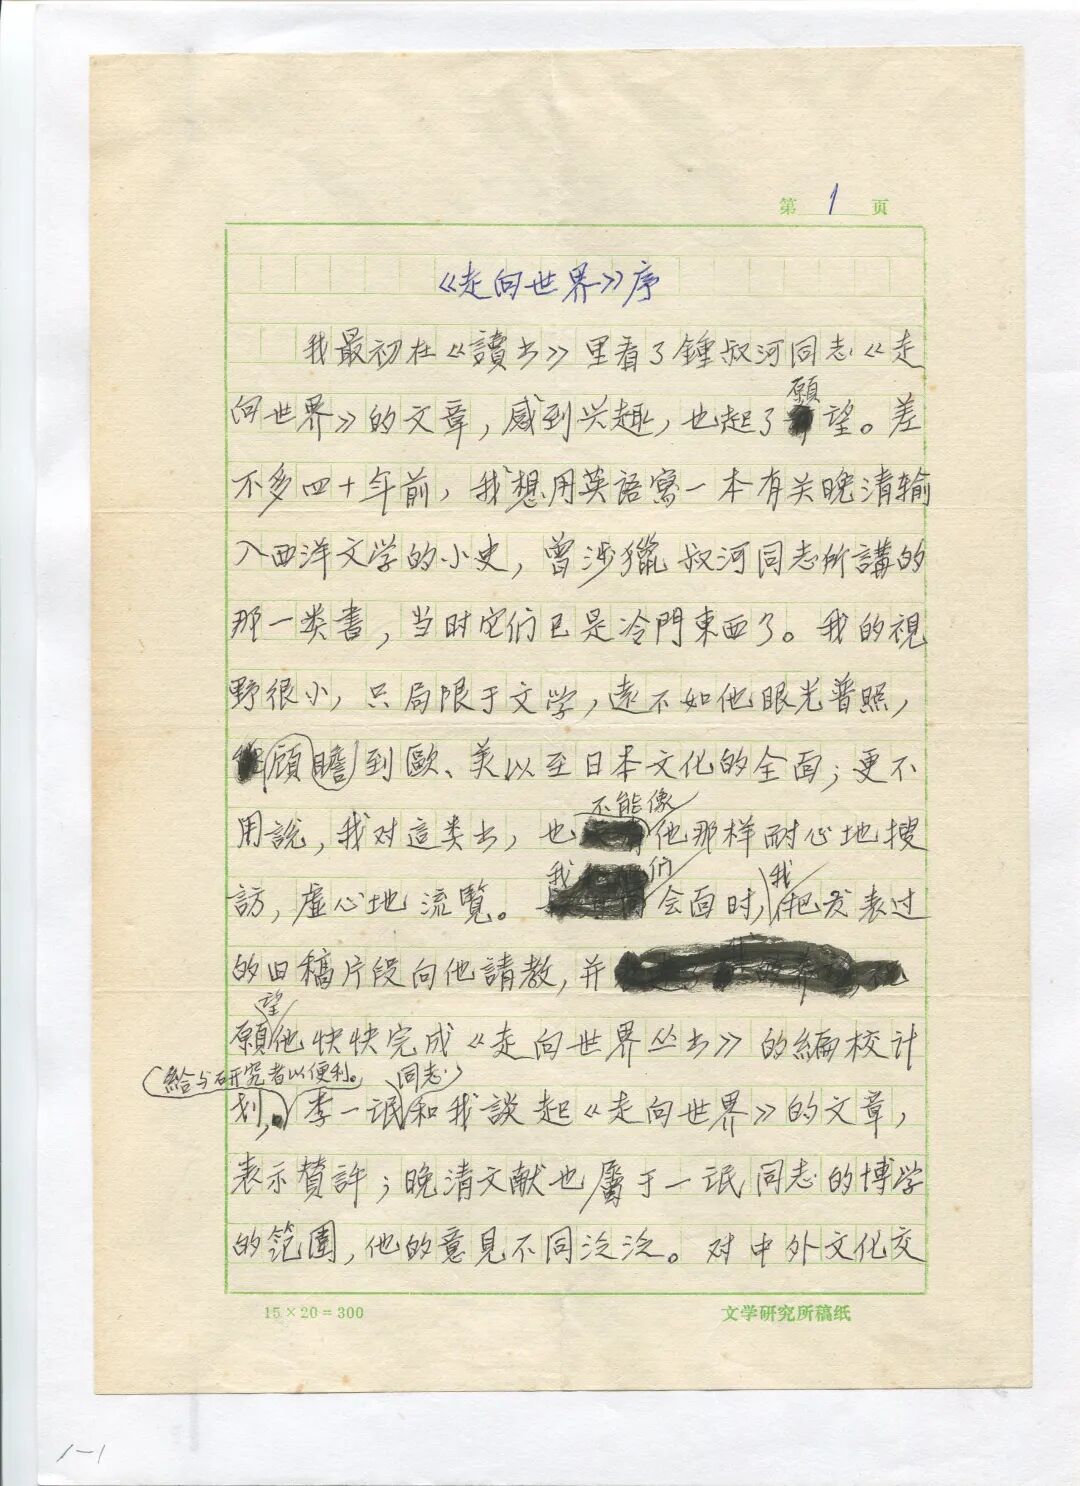 第 1 页
《走向世界》序
我最初在《讀书》里看了鍾叔河同志《走
向世界》的文章，感到兴趣，也起了願望。差
不多四十年前，我想用英語寫一本有关晚清输
入西洋文学的小史，曾涉獵叔河同志所講的
那一类書，当时它们已是冷門東西了。我的視
野很小，只局限于文学，遠不如他眼光普照，
顧瞻到歐、美以至日本文化的全面；更不
用說，我对這类书，也不能像他那样耐心地搜
訪，虛心地流覽。我们会面时，我把发表过
的旧稿片段向他請教，并
願望他快快完成《走向世界丛书》的編校计
給与研究者以便利。同志
划，李一氓和我談起《走向世界》的文章，
表示赞許；晚清文献也屬于一氓同志的博学
的范圍，他的意見不同泛泛。对中外文化交
15×20=300
文学研究所稿纸
1-1